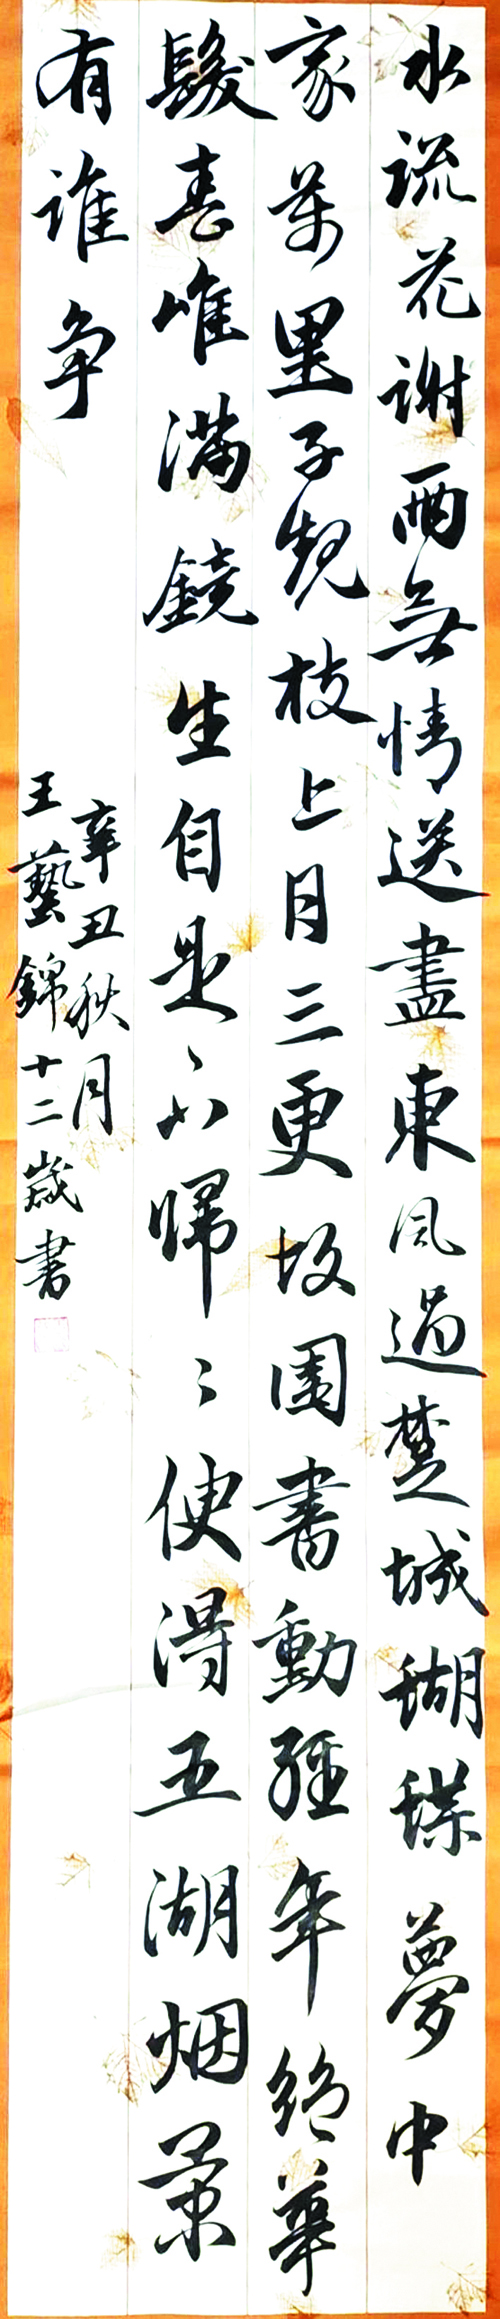 水流花謝兩無情送盡東風過楚城蝴蝶夢中
家萬里子規枝上月三更故園書動經年絶華
髮春唯滿鏡生自是不歸〻便得五湖烟景
有誰争
辛丑秋月
王藝錦十二歲书